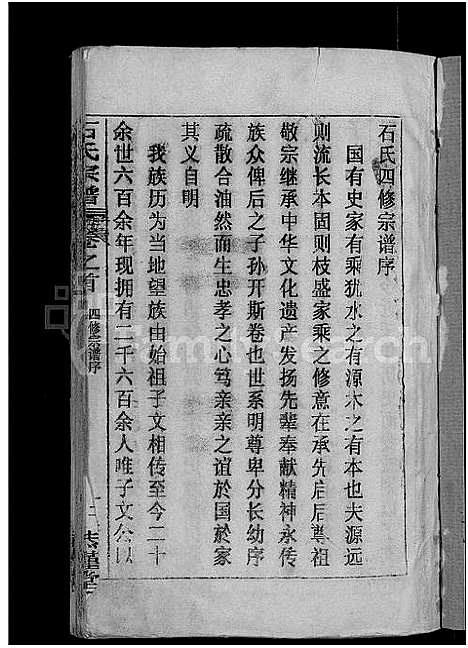 石氏四修宗谱序
国有史家有乘犹水之有源木之有本也夫源远
则流长本固则枝盛家乘之修意在承先启后尊祖
敬宗继承中华文化遗产发扬先辈奉献精神永传
族众俾后之子孙开斯卷也世系明尊卑分长幼序
疏散合油然而生忠孝之心笃亲亲之谊於国於家
其义自明
我族历为当地望族由始祖子文相传至今二十
余世六百余年现拥有二千六百余人唯子文公以
石氏宗谱
卷之首
四修宗谱序
FamilySearch